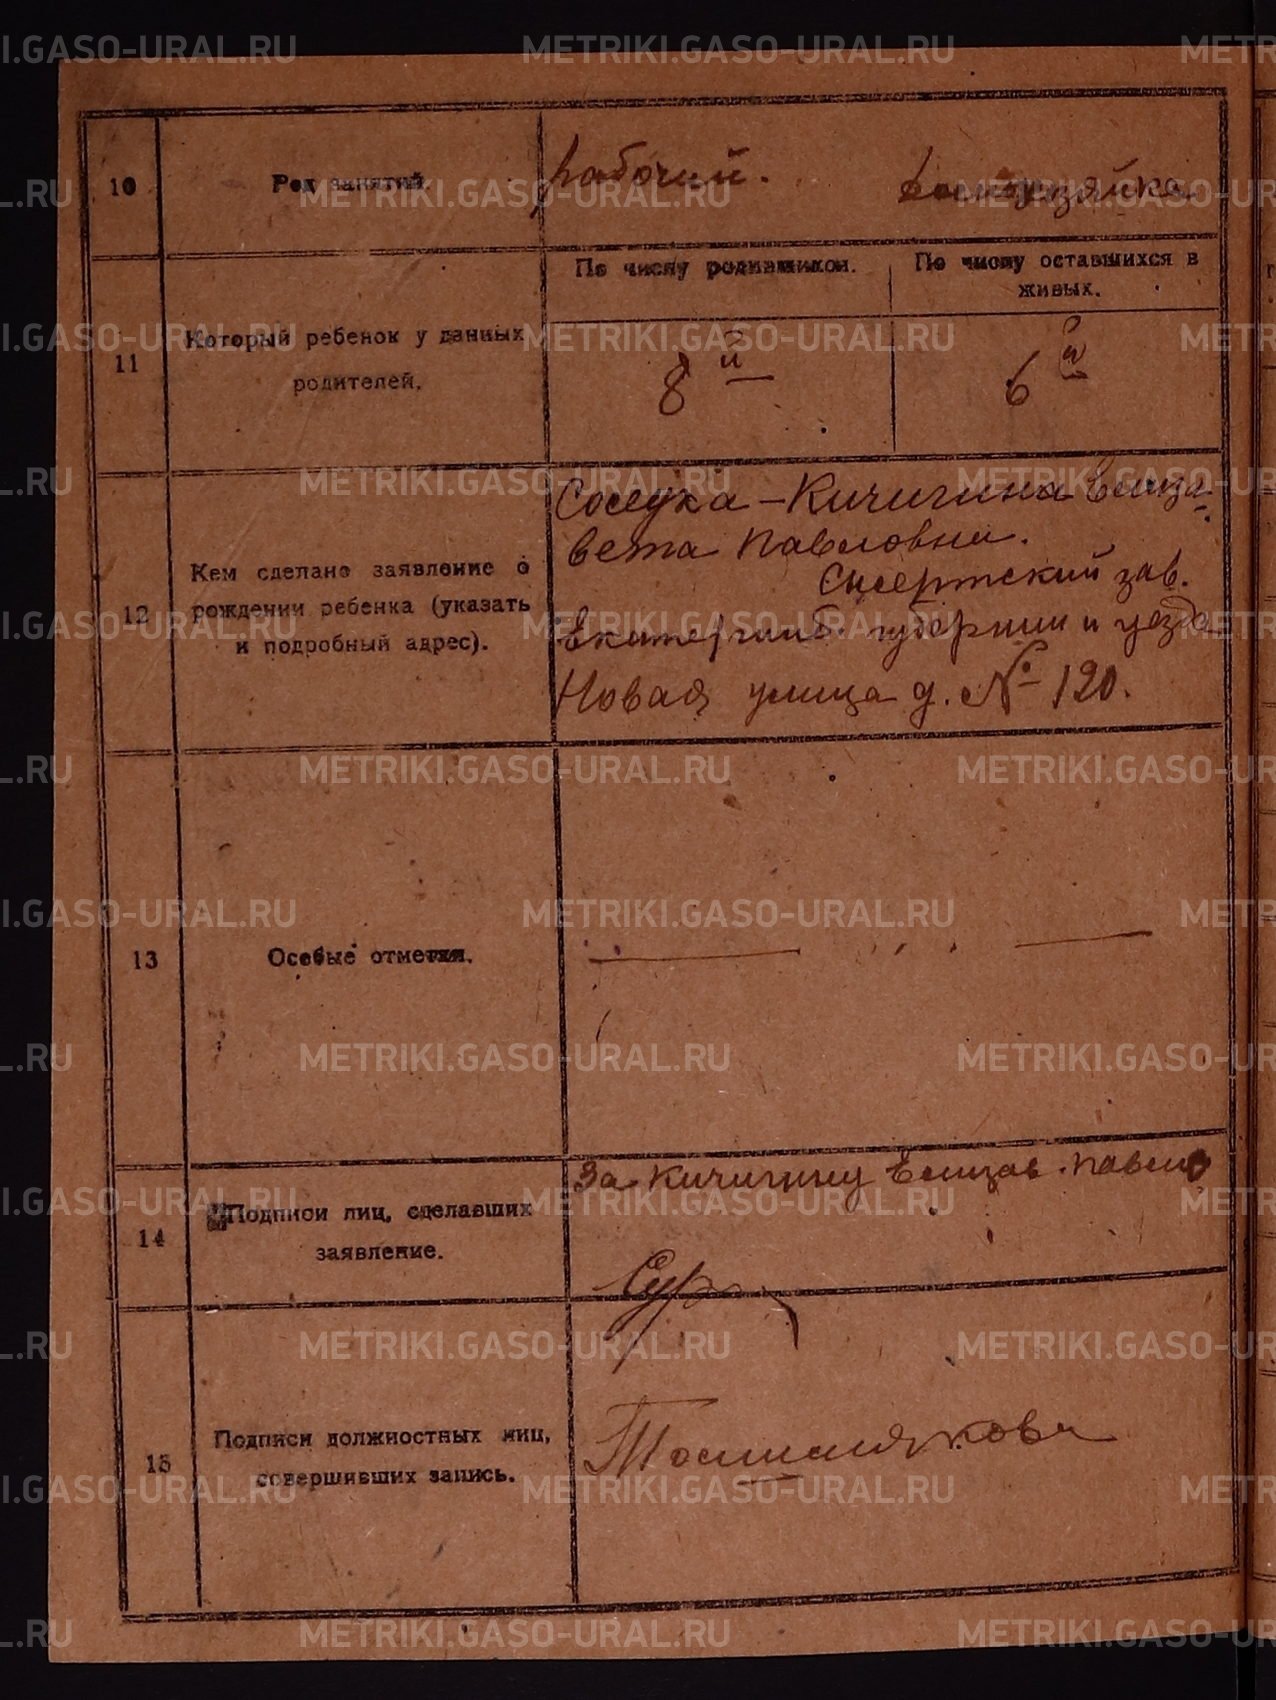 10
Род занятий.
рабочий.
домохозяйка.
11
Который ребенок у данных
родителей.
По числу родившихся.
По числу оставшихся в
живых.
8 й
6 й
12
Кем сделано заявление о
рождении ребенка (указать
и подробный адрес).
Соседка – Кичигина Елиза-
вета Павловна.
Сысертский зав.
Екатеринб. губернии и уезда
Новая улица д. № 120.
13
Особые отметки.
14
Подписи лиц, сделавших
заявление.
За Кичигину Елизав. Павло
15
Подписи должностных лиц,
совершивших запись.
METRIKI.GASO-URAL.RU